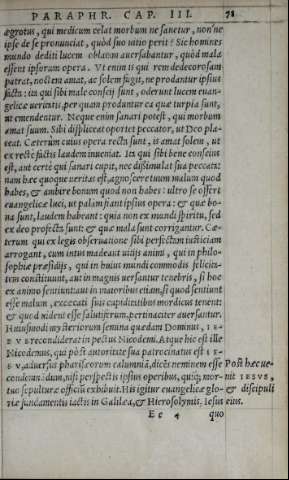 PARAPHR. CAP. III. 78
ægrotus, qui medicum celat morbum ne sanetur, non'ne
ipse de se pronunciat, quòd suo uitio perit? Sic homines
mundo dediti lucem oblatam auersabantur, quòd mala
essent ipsorum opera. Vt enim is qui rem dedecorosam
patrat, noctem amat, ac solem fugit, ne prodantur ipsius
facta: ita qui sibi male conscij sunt, oderunt lucem euan-
gelicæ ueritatis, per quam produntur ea quæ turpia sunt,
ut emendentur. Neque enim sanari potest, qui morbum
amat suum. Sibi displiceat oportet peccator, ut Deo pla-
ceat. Cæterum cuius opera recta sunt, is amat solem, ut
ex recte factis laudem inueniat. Ita qui sibi bene conscius
est, aut certè qui sanari cupit, nec dissimulat sua peccata:
nam hæc quoque ueritas est, agnoscere tuum malum quod
habes, & ambire bonum quod non habes: ultro se offert
euangelicæ luci, ut palam fiant ipsius opera: & quæ bo-
na sunt, laudem habeant: quia non ex mundi spiritu, sed
ex deo profecta sunt: & quæ mala sunt corrigantur. Cæ-
terum qui ex legis obseruatione sibi perfectam iusticiam
arrogant, cum intus madeant uitijs animi, qui in philo-
sophiæ præsidijs, qui in huius mundi commodis felicita-
tem constituunt, aut in magnis uersantur tenebris, si hoc
ex animo sentiunt: aut in maioribus etiam, si quod sentiunt
esse malum, excæcati suis cupiditatibus mordicus tenent:
& quod uident esse salutiferum, pertinaciter auersantur.
Huiusmodi mysteriorum semina quædam Dominus, IE-
SVS recondiderat in pectus Nicodemi. Atque hic est ille
Nicodemus, qui pòst autoritate sua patrocinatus est IE-
SV, aduersus pharisæorum calumniã, dicẽs neminem esse
condemnãdum, nisi perspectis ipsius operibus, quiq; mor-
tuo sepulturæ officiũ exhibuit. His igitur euangelicæ glo-
riæ fundamentis iactis in Galilæa, & Hierosolymis, Iesus
Post hæc ue-
nit IESVS,
& discipuli
eius.
Ee 4 quo